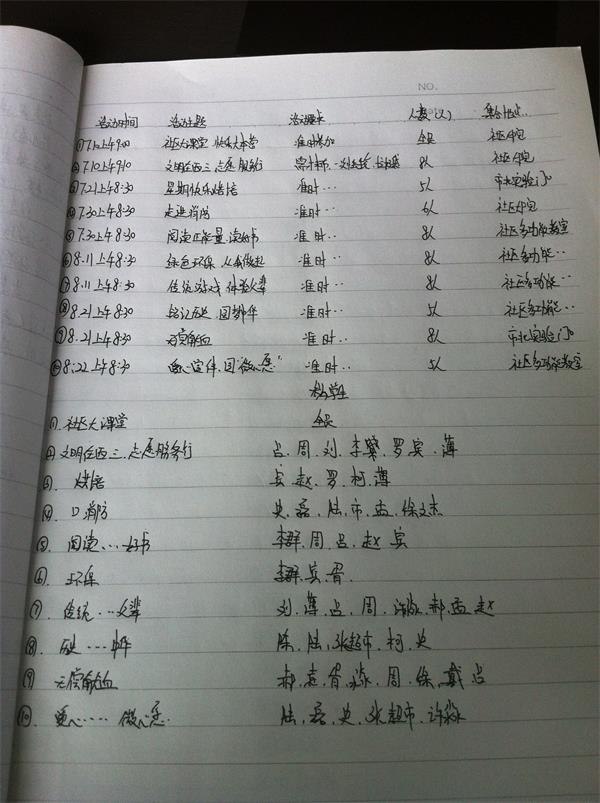 NO.
活动时间 活动主题 活动要求 人数(人) 集合地点
①7.10上午9:00 社区大课堂 快乐大本营 准时参加 全员 社区中包
②7.10上午9:10 文明在西三,志愿服务行 8人 社区中包
③7.21上午8:30 星期快乐烘焙 准时… 5人 市北实验门口
④7.30上午8:30 走进消防 准时… 6人 社区中包
⑤7.30上午8:30 阅读正能量,读好书 准时… 8人 社区多功能教室
⑥8.11上午8:30 绿色环保,从我做起 准时… 8人 社区多功能…
⑦8.11上午8:30 传统游戏,体验父辈 准时… 8人 社区多功能…
⑧8.21上午8:30 铭记历史,圆梦中华 准时… 5人 社区多功能…
⑨8.21上午8:30 无偿献血 准时… 8人 市北实验门口
⑩8.22上午8:30 爱心宣传,圆"微心愿" 准时… 5人 社区多功能教室
学生
①.社区大课堂 全员
②.文明在西三,志愿服务行 吕.周.刘.李.罗.宾.薄
③.烘焙 宾.赵.罗.柯.薄
④.消防 史.磊.陆.市.孟.徐文杰
⑤.阅读…好书 李群.周.吕.赵.宾
⑥.环保 李群.宾.胥.
⑦.传统…父辈 刘.薄.吕.周.郝.孟.赵
⑧.历史……中华 陈.陆.张超市.柯.史
⑨.无偿献血 郝.孟.胥.淼.周.徐.戴.吕
⑩.爱心……微心愿. 陆.磊.史.张超市.许淼